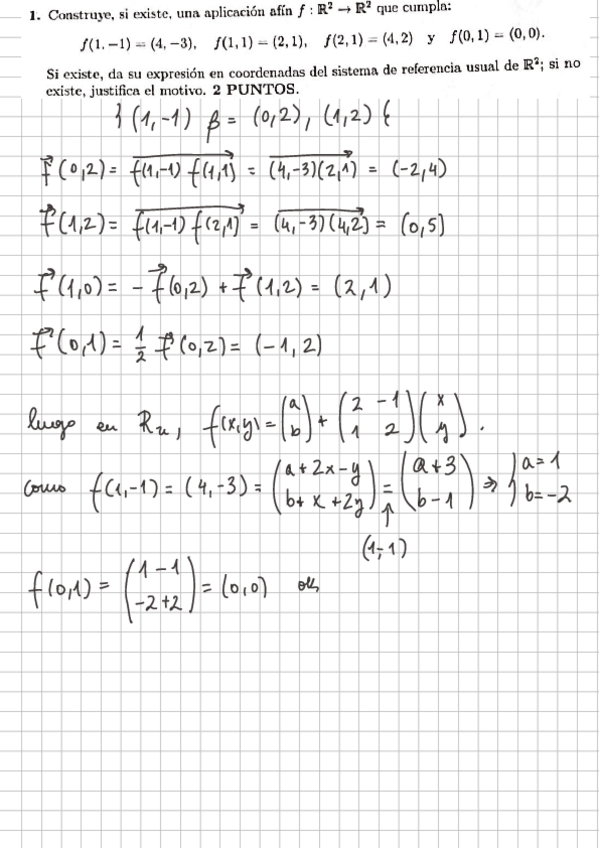 1. Construye, si existe, una aplicación afín f : R² → R² que cumpla:
f(1, −1) = (4, −3), f(1, 1) = (2, 1), f(2, 1) = (4, 2) y f(0, 1) = (0, 0).
Si existe, da su expresión en coordenadas del sistema de referencia usual de R²; si no
existe, justifica el motivo. 2 PUNTOS.
{ (1,-1) β = (0,2), (1,2) {
f⃗(0,2) = f(1,-1) f(1,1) = (4,-3)(2,1) = (-2,4)
f⃗(1,2) = f(1,-1) f(2,1) = (4,-3)(4,2) = (0,5)
f⃗(1,0) = - f⃗(0,2) + f⃗(1,2) = (2,1)
f⃗(0,1) = 1/2 f⃗(0,2) = (-1,2)
luego en Ru, f(x,y) = (a b) + (2 -1 1 2)(x y).
como f(1,-1) = (4,-3) = (a+2x-y b+x+2y) = (a+3 b-1) ⇒ } a=1 b=-2
↑
(1,-1)
f(0,1) = (1-1 -2+2) = (0,0) ok